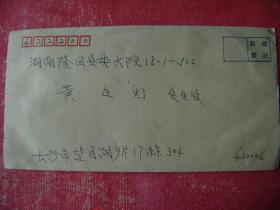 422200
贴邮
票处
湖南隆回县委大院12-1-502
黄生好 先生收
长沙市望月湖9片17栋304
410006